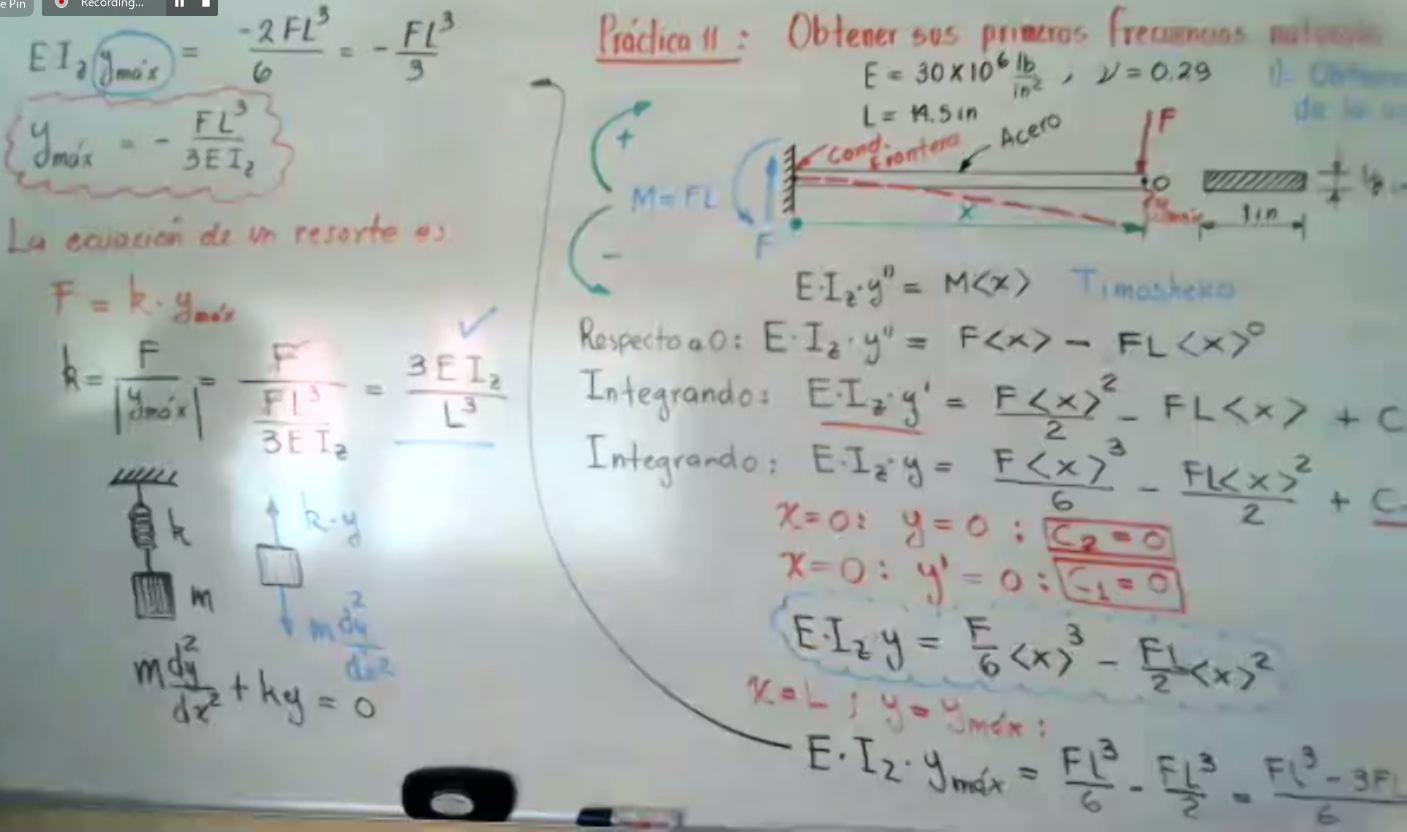 Recording...
E I_z y_máx = -2FL³/6 = - FL³/3
y_máx = - FL³/3EI_z
La ecuación de un resorte es
F = k · y_máx
k = F/|y_máx| = F/(FL³/3EI_z) = 3EI_z/L³
k
m
k·y
m d²y/dx²
m d²y/dx² + ky = 0
Práctica 11 : Obtener sus primeras frecuencias naturales
E = 30×10⁶ lb/in² , ν = 0.29
de la
Acero
F
cond. frontera
+
M = FL
−
F
x
O
1in
E·I_z·y'' = M<x> Timoshenko
Respecto a O: E·I_z·y'' = F<x> − FL<x>⁰
Integrando: E·I_z·y' = F<x>²/2 − FL<x> + C
Integrando: E·I_z·y = F<x>³/6 − FL<x>²/2 + C
x=0: y=0 : C₂ = 0
x=0: y'=0 : C₁ = 0
E·I_z y = F/6 <x>³ − FL/2 <x>²
x=L ; y = y_máx :
E·I_z·y_máx = FL³/6 - FL³/2 = FL³ - 3FL/6